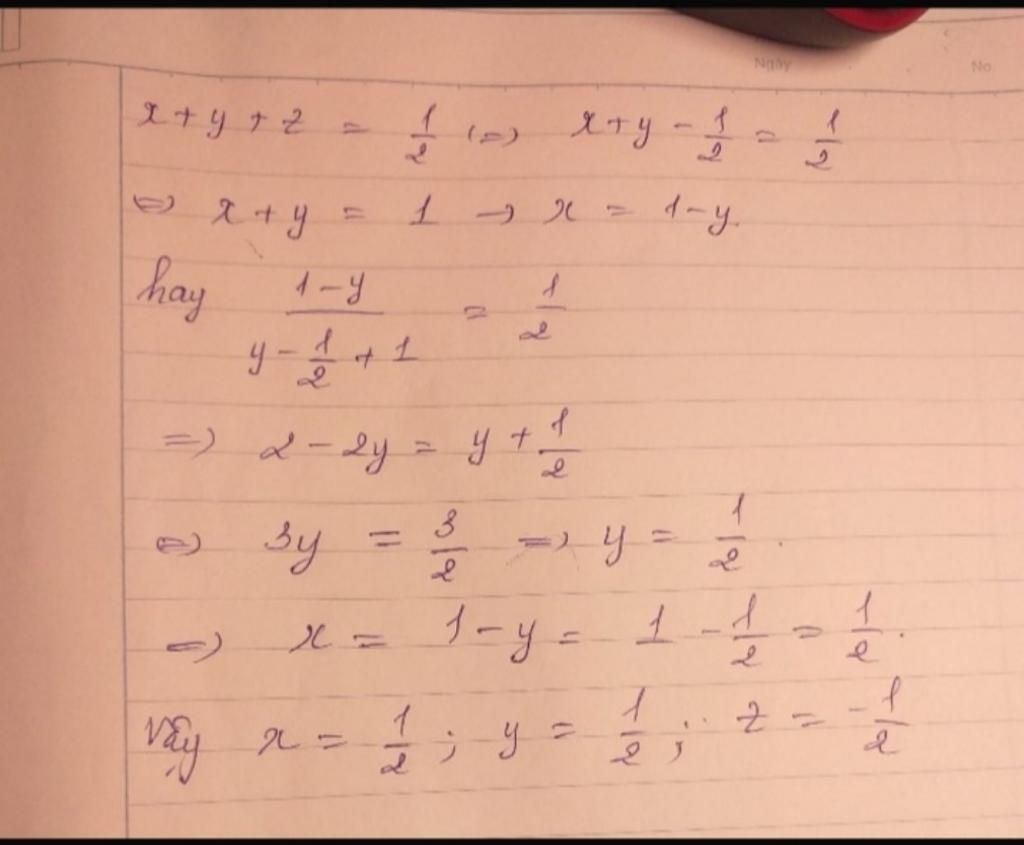 Ngày No
x+y+z = 1/2 (=) x+y - 1/2 = 1/2
(=) x+y = 1 → x = 1-y.
hay (1-y)/(y - 1/2 + 1) = 1/2
=) 2 - 2y = y + 1/2
(=) 3y = 3/2 =) y = 1/2.
=) x = 1-y = 1 - 1/2 = 1/2.
Vậy x = 1/2 ; y = 1/2 ; z = -1/2